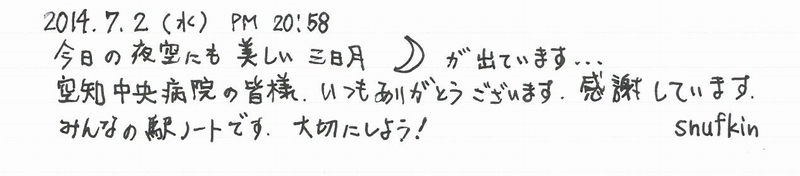 2014.7.2(水) PM 20:58
今日の夜空にも 美しい 三日月 が 出ています...
空知中央病院の皆様. いつもありがとうございます. 感謝しています.
みんなの駅ノートです. 大切にしよう! snufkin